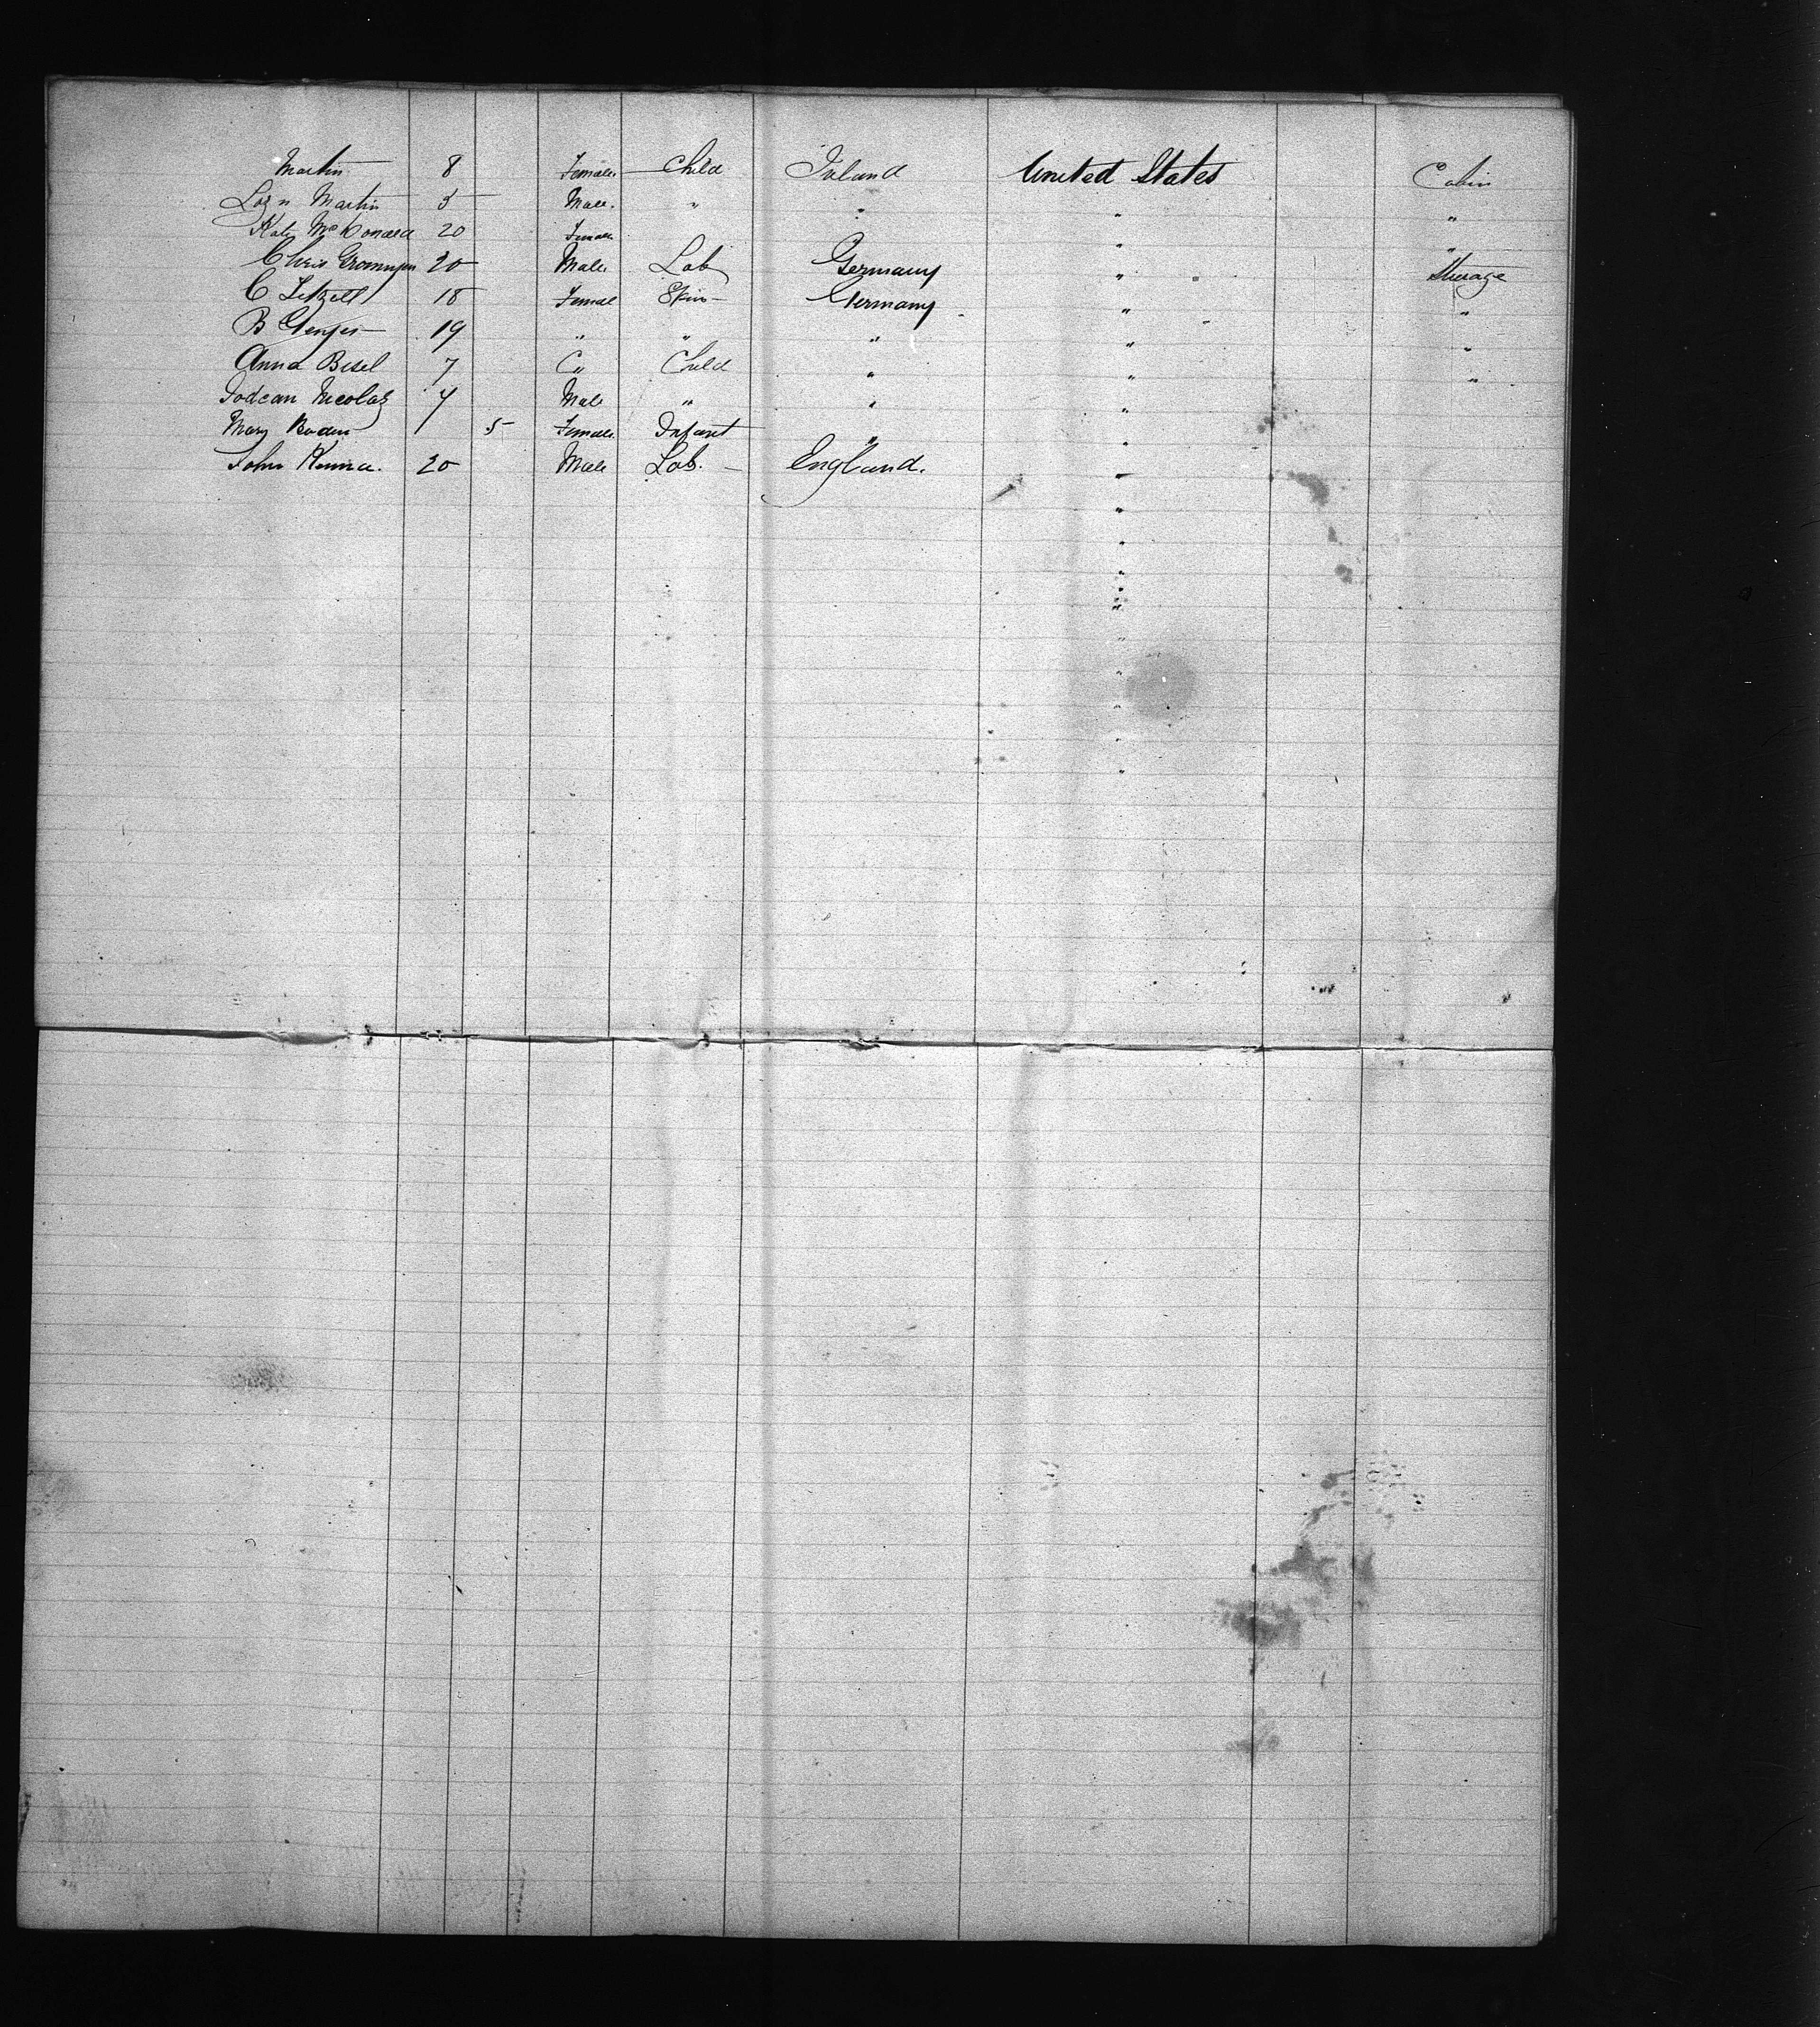 Martin 8 Female Child Ireland United States Cabin
Martin 5 Male " " " "
Kate McDonald 20 Female " "
Chris 20 Male Lab Germany " " Steerage
C 18 Female Spin - Germany " "
B 19 " " " " "
Anna Bisel 7 " Child " " "
Nicolas 4 Male " " "
Mary 5 Female Infant " "
John Kenna. 20 Male Lab. - England. "
"
"
"
"
"
"
"
"
"